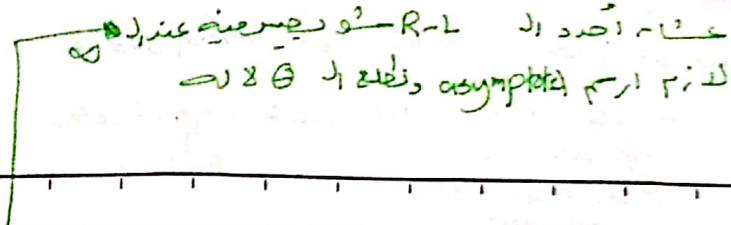 عشان أحدد ال R-L شو بصير فيه عند ال ∞
لازم ارسم asymptotes ونطلع ال θ لاله